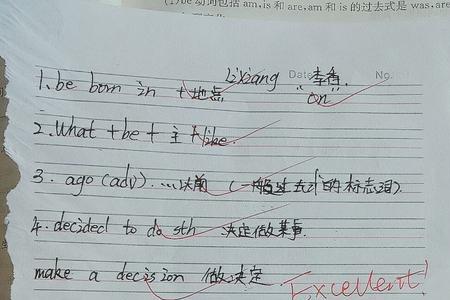 (1)be 动词包括 am,is 和 are,am 和 is 的过去式是 was,are
Lixiang Date 李香 No.
1. be born in +地点 on
2. What +be+ 主 +like.
3. ago (adv). ...以前 (一般过去时的标志词).
4. decided to do sth 决定做某事.
make a decision 做决定
Excellent!